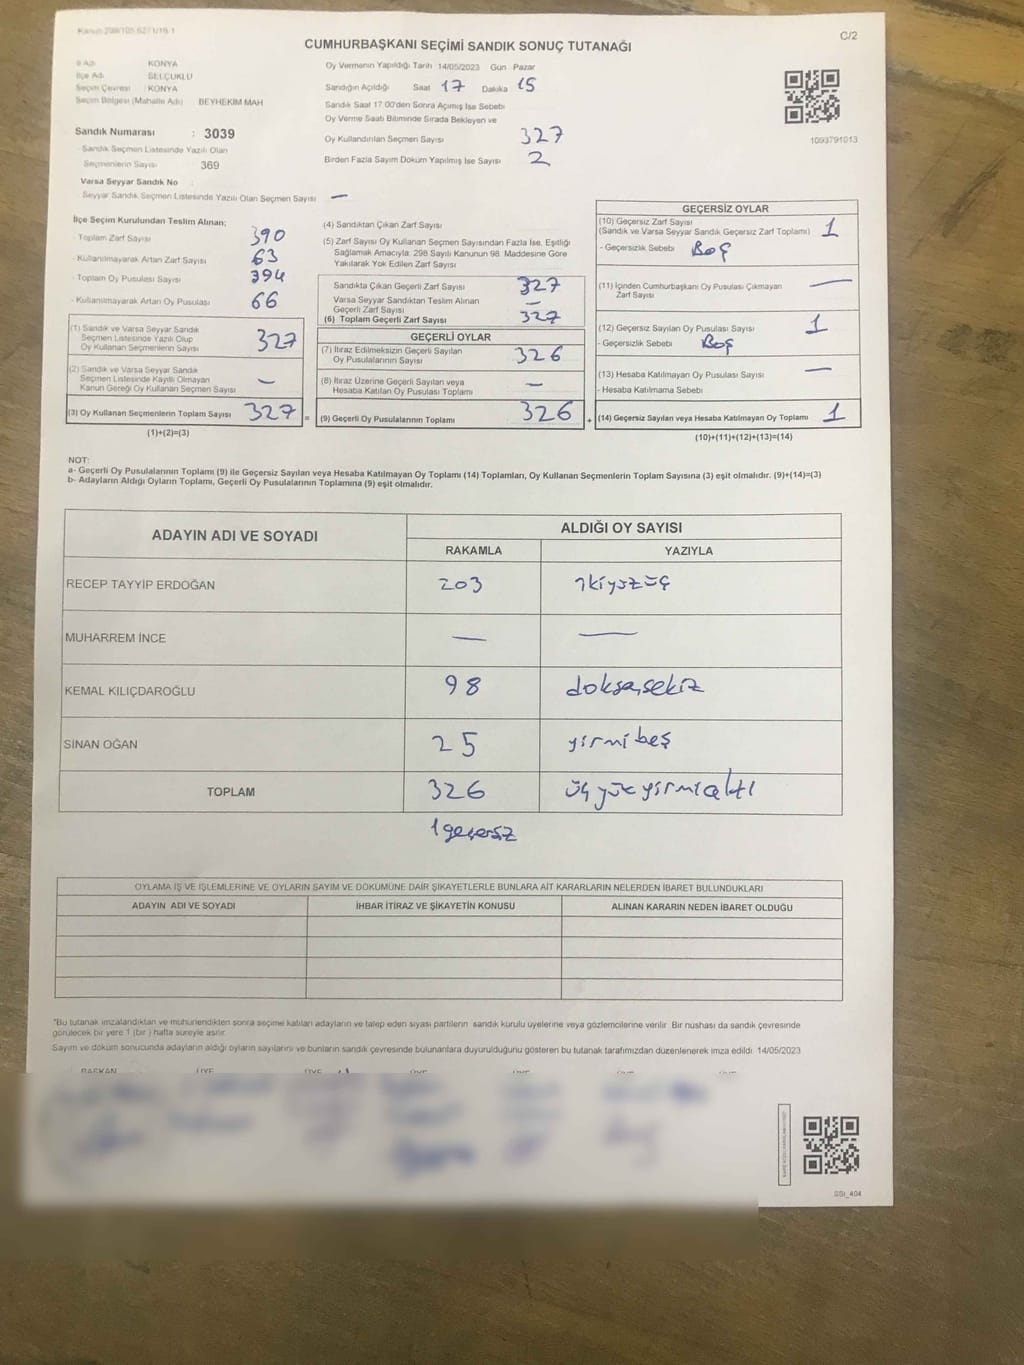 Kanun 298/105,6271/16-1
C/2
CUMHURBAŞKANI SEÇİMİ SANDIK SONUÇ TUTANAĞI
İl Adı KONYA
İlçe Adı SELÇUKLU
Seçim Çevresi : KONYA
Seçim Bölgesi (Mahalle Adı) BEYHEKİM MAH
Sandık Numarası : 3039
- Sandık Seçmen Listesinde Yazılı Olan
Seçmenlerin Sayısı 369
Varsa Seyyar Sandık No
- Seyyar Sandık Seçmen Listesinde Yazılı Olan Seçmen Sayısı —
Oy Vermenin Yapıldığı Tarih 14/05/2023 Gün Pazar
Sandığın Açıldığı Saat 17 Dakika 15
Sandık Saat 17.00'den Sonra Açılmış İse Sebebi
Oy Verme Saati Bitiminde Sırada Bekleyen ve
Oy Kullandırılan Seçmen Sayısı 327
Birden Fazla Sayım Döküm Yapılmış İse Sayısı 2
1093791013
İlçe Seçim Kurulundan Teslim Alınan;
- Toplam Zarf Sayısı 390
- Kullanılmayarak Artan Zarf Sayısı 63
- Toplam Oy Pusulası Sayısı 394
- Kullanılmayarak Artan Oy Pusulası 66
(1) Sandık ve Varsa Seyyar Sandık
Seçmen Listesinde Yazılı Olup
Oy Kullanan Seçmenlerin Sayısı 327
(2) Sandık ve Varsa Seyyar Sandık
Seçmen Listesinde Kayıtlı Olmayan
Kanun Gereği Oy Kullanan Seçmen Sayısı —
(3) Oy Kullanan Seçmenlerin Toplam Sayısı 327 =
(1)+(2)=(3)
(4) Sandıktan Çıkan Zarf Sayısı
(5) Zarf Sayısı Oy Kullanan Seçmen Sayısından Fazla İse, Eşitliği
Sağlamak Amacıyla, 298 Sayılı Kanunun 98. Maddesine Göre
Yakılarak Yok Edilen Zarf Sayısı
Sandıkta Çıkan Geçerli Zarf Sayısı 327
Varsa Seyyar Sandıktan Teslim Alınan
Geçerli Zarf Sayısı —
(6) Toplam Geçerli Zarf Sayısı 327
GEÇERLİ OYLAR
(7) İtiraz Edilmeksizin Geçerli Sayılan
Oy Pusulalarının Sayısı 326
(8) İtiraz Üzerine Geçerli Sayılan veya
Hesaba Katılan Oy Pusulası Toplamı —
(9) Geçerli Oy Pusulalarının Toplamı 326 +
GEÇERSİZ OYLAR
(10) Geçersiz Zarf Sayısı
(Sandık ve Varsa Seyyar Sandık Geçersiz Zarf Toplamı) 1
- Geçersizlik Sebebi Boş
(11) İçinden Cumhurbaşkanı Oy Pusulası Çıkmayan
Zarf Sayısı —
(12) Geçersiz Sayılan Oy Pusulası Sayısı 1
- Geçersizlik Sebebi Boş
(13) Hesaba Katılmayan Oy Pusulası Sayısı —
- Hesaba Katılmama Sebebi
(14) Geçersiz Sayılan veya Hesaba Katılmayan Oy Toplamı 1
(10)+(11)+(12)+(13)=(14)
NOT:
a- Geçerli Oy Pusulalarının Toplamı (9) ile Geçersiz Sayılan veya Hesaba Katılmayan Oy Toplamı (14) Toplamları, Oy Kullanan Seçmenlerin Toplam Sayısına (3) eşit olmalıdır. (9)+(14)=(3)
b- Adayların Aldığı Oyların Toplamı, Geçerli Oy Pusulalarının Toplamına (9) eşit olmalıdır.
ADAYIN ADI VE SOYADI ALDIĞI OY SAYISI
RAKAMLA YAZIYLA
RECEP TAYYİP ERDOĞAN 203 ikiyüzüç
MUHARREM İNCE — —
KEMAL KILIÇDAROĞLU 98 doksansekiz
SİNAN OĞAN 25 yirmi beş
TOPLAM 326 üçyüzyirmialtı
1 geçersiz
OYLAMA İŞ VE İŞLEMLERİNE VE OYLARIN SAYIM VE DÖKÜMÜNE DAİR ŞİKAYETLERLE BUNLARA AİT KARARLARIN NELERDEN İBARET BULUNDUKLARI
ADAYIN ADI VE SOYADI İHBAR İTİRAZ VE ŞİKAYETİN KONUSU ALINAN KARARIN NEDEN İBARET OLDUĞU
*Bu tutanak imzalandıktan ve mühürlendikten sonra seçime katılan adayların ve talep eden siyasi partilerin sandık kurulu üyelerine veya gözlemcilerine verilir. Bir nüshası da sandık çevresinde
görülecek bir yere 1 (bir ) hafta süreyle asılır.
Sayım ve döküm sonucunda adayların aldığı oyların sayılarını ve bunların sandık çevresinde bulunanlara duyurulduğunu gösteren bu tutanak tarafımızdan düzenlenerek imza edildi. 14/05/2023
BAŞKAN ÜYE ÜYE ÜYE ÜYE ÜYE ÜYE
SSI_404